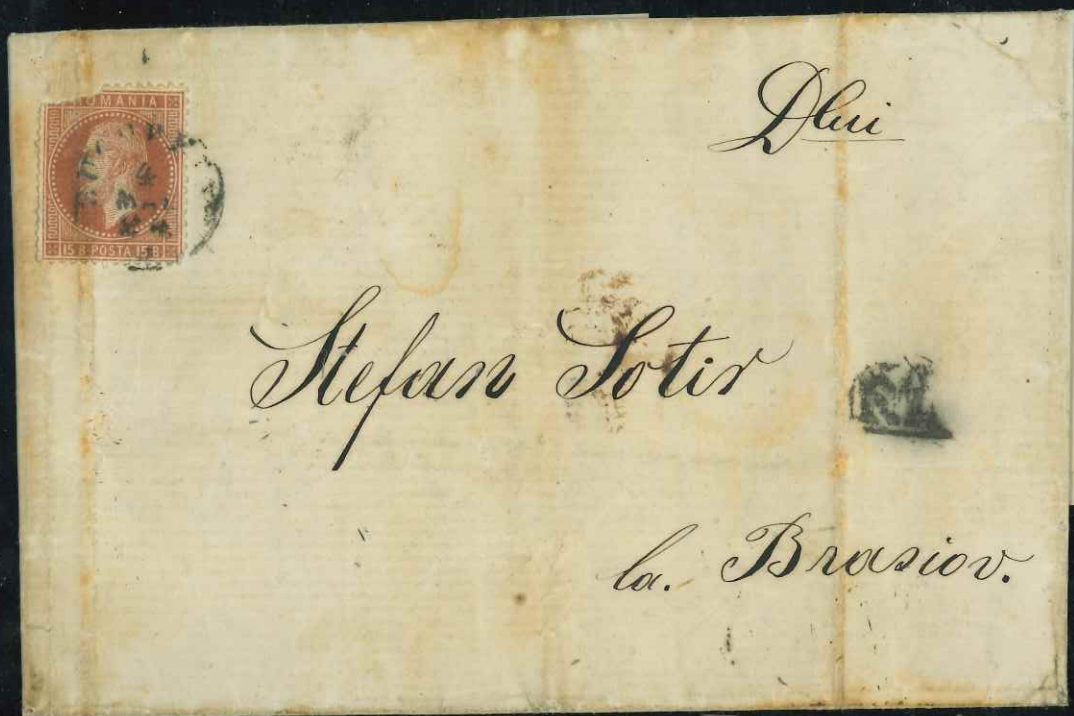 Dlui
ROMANIA
15 B POSTA 15 B
Stefan Sotir
la. Brasiov.